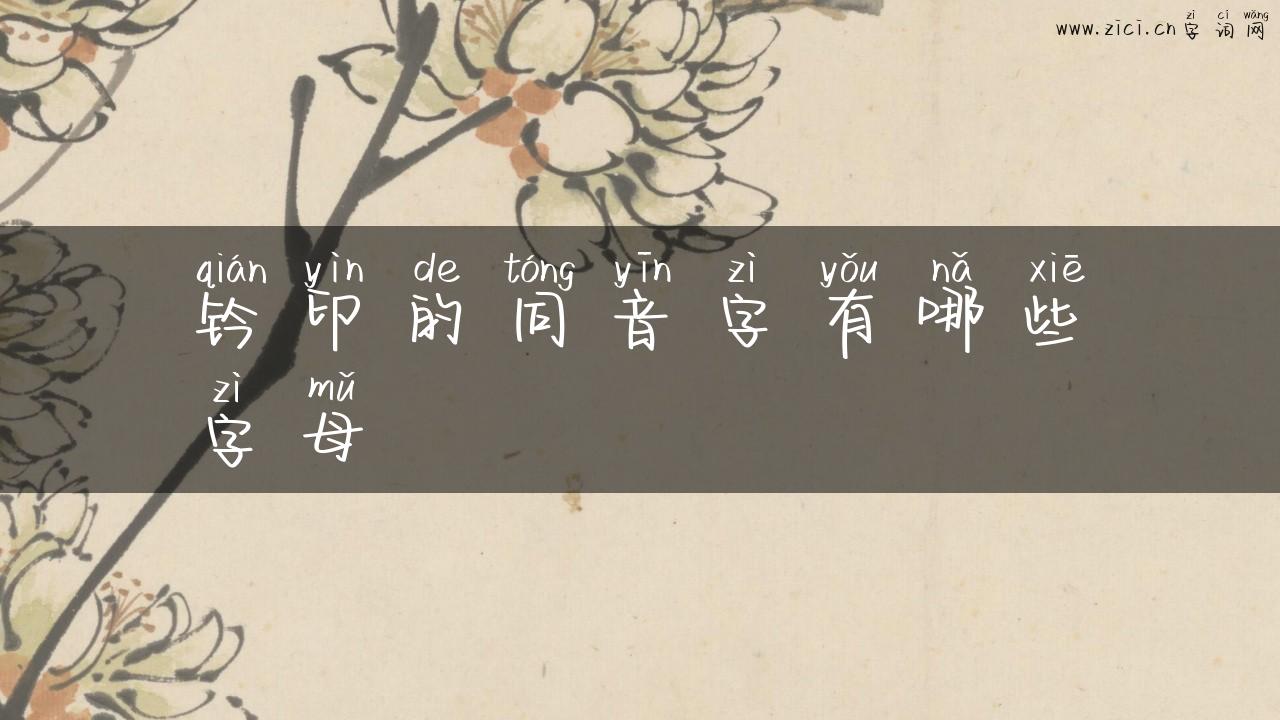 zì cí wǎng
www.zici.cn 字词网
qián yìn de tóng yīn zì yǒu nǎ xiē
钤印的同音字有哪些
zì mǔ
字母